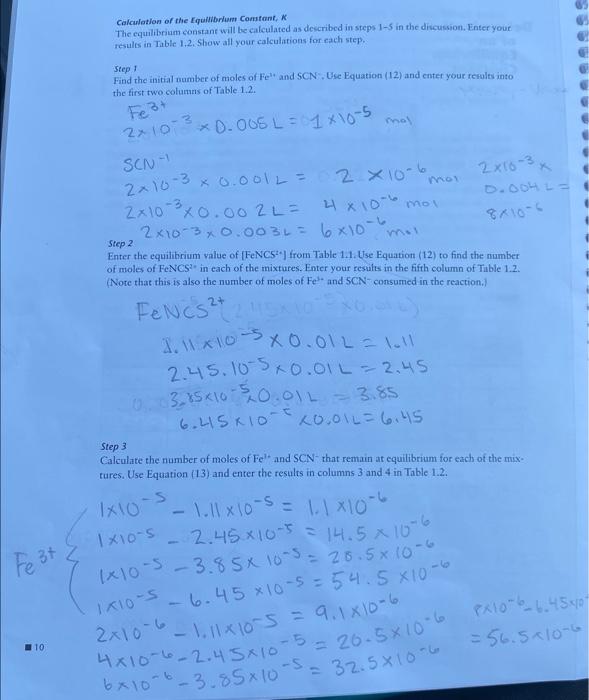 Calculation of the Equilibrium Constant, K
The equilibrium constant will be calculated as described in steps 1–5 in the discussion. Enter your
results in Table 1.2. Show all your calculations for each step.
Step 1
Find the initial number of moles of Fe³⁺ and SCN⁻. Use Equation (12) and enter your results into
the first two columns of Table 1.2.
Fe³⁺
2×10⁻³ × 0.005L = 1×10⁻⁵ mol
SCN⁻¹
2×10⁻³ × 0.001L = 2×10⁻⁶ mol
2×10⁻³×0.002L = 4×10⁻⁶ mol
2×10⁻³×0.003L = 6×10⁻⁶ mol
2×10⁻³×
0.004L =
8×10⁻⁶
Step 2
Enter the equilibrium value of [FeNCS²⁺] from Table 1.1. Use Equation (12) to find the number
of moles of FeNCS²⁺ in each of the mixtures. Enter your results in the fifth column of Table 1.2.
(Note that this is also the number of moles of Fe³⁺ and SCN⁻ consumed in the reaction.)
FeNCS²⁺
1.11×10⁻⁵×0.01L = 1.11
2.45.10⁻⁵×0.01L = 2.45
3.85×10⁻⁵×0.01L = 3.85
6.45×10⁻⁵×0.01L = 6.45
Step 3
Calculate the number of moles of Fe³⁺ and SCN⁻ that remain at equilibrium for each of the mix-
tures. Use Equation (13) and enter the results in columns 3 and 4 in Table 1.2.
Fe³⁺
1×10⁻⁵ – 1.11×10⁻⁵ = 1.1×10⁻⁶
1×10⁻⁵ – 2.45×10⁻⁵ = 14.5×10⁻⁶
1×10⁻⁵ – 3.85×10⁻⁵ = 28.5×10⁻⁶
1×10⁻⁵ – 6.45×10⁻⁵ = 54.5×10⁻⁶
2×10⁻⁶ – 1.11×10⁻⁵ = 9.1×10⁻⁶
4×10⁻⁶ – 2.45×10⁻⁵ = 20.5×10⁻⁶
6×10⁻⁶ – 3.85×10⁻⁵ = 32.5×10⁻⁶
8×10⁻⁶ – 6.45×10
= 56.5×10⁻⁶
■ 10